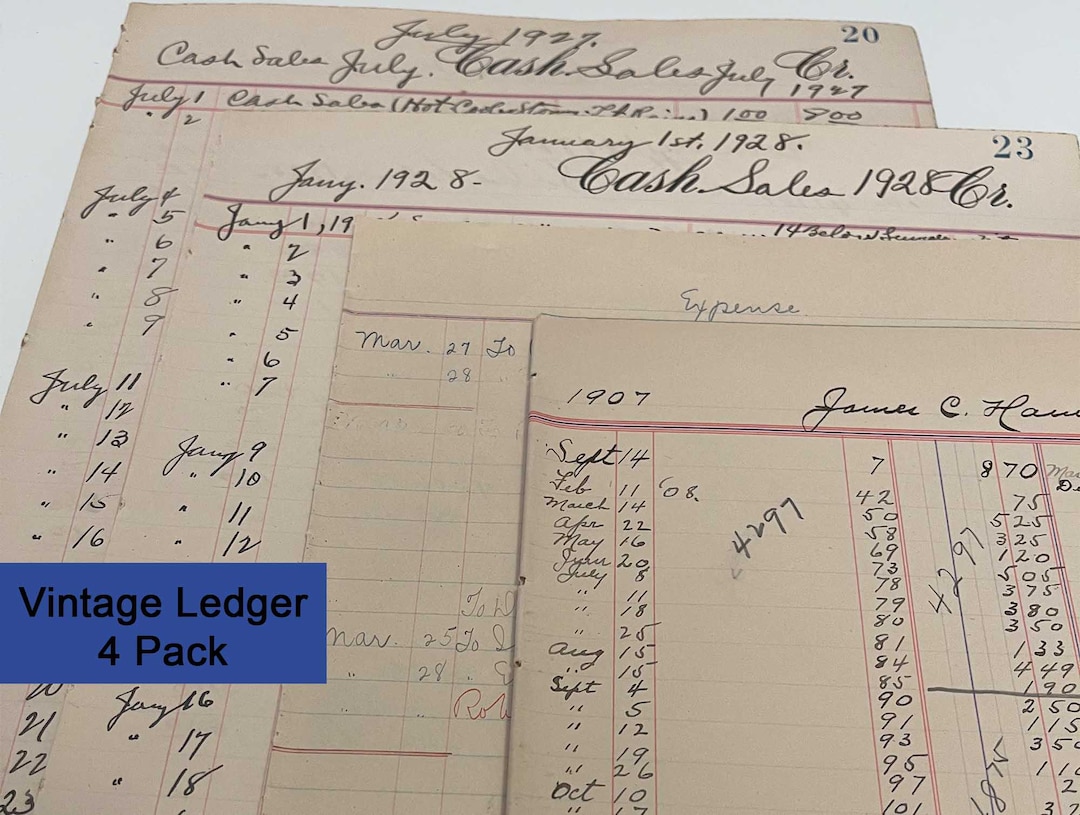 July 1927.
20
Cash Sales July. Cash Sales July Cr.
1927
July 1 Cash Sales (Hot 1.00 8.00
" 2
July 4
" 5
" 6
" 7
" 8
" 9
July 11
" 12
" 13
" 14
" 15
" 16
20
21
22
23
January 1st. 1928.
23
Jany. 1928- Cash Sales 1928 Cr.
Jany 1, 19 14 Below
" 2
" 3
" 4
" 5
" 6
" 7
Jany 9
" 10
" 11
" 12
Jany 16
" 17
" 18
Expense
Mar. 27 To
" 28 "
To
Mar. 25 To
" 28
" "
1907 James C.
Sept 14 7 8 70
Feb 11 '08. 42 75
March 14 50 5 25
Apr 22 58 3 25
May 16 69 1 20
June 20 73 5 05
July 8 78 3 75
" 11 79 3 80
" 18 80 3 50
" 25 81 1 33
Aug 15 84 4 49
" 15 85 1 90
Sept 4 90 2 50
" 5 91 1 15
" 12 93 3 50
" 19 95
" 26 97
Oct 10 101
" 17
4297
42 97
Vintage Ledger
4 Pack